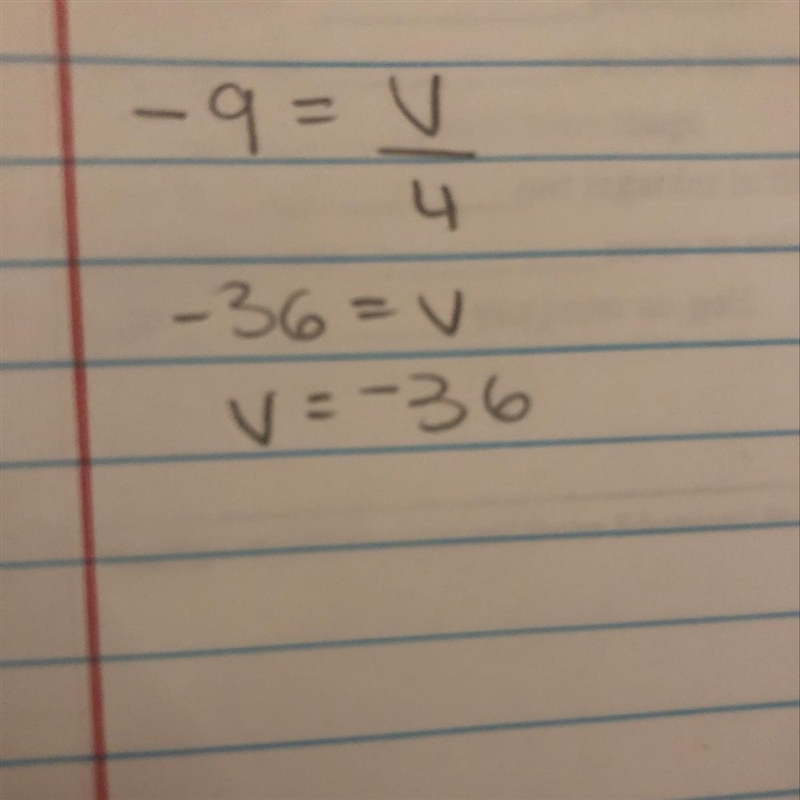 -9 = V/4
-36 = V
V = -36